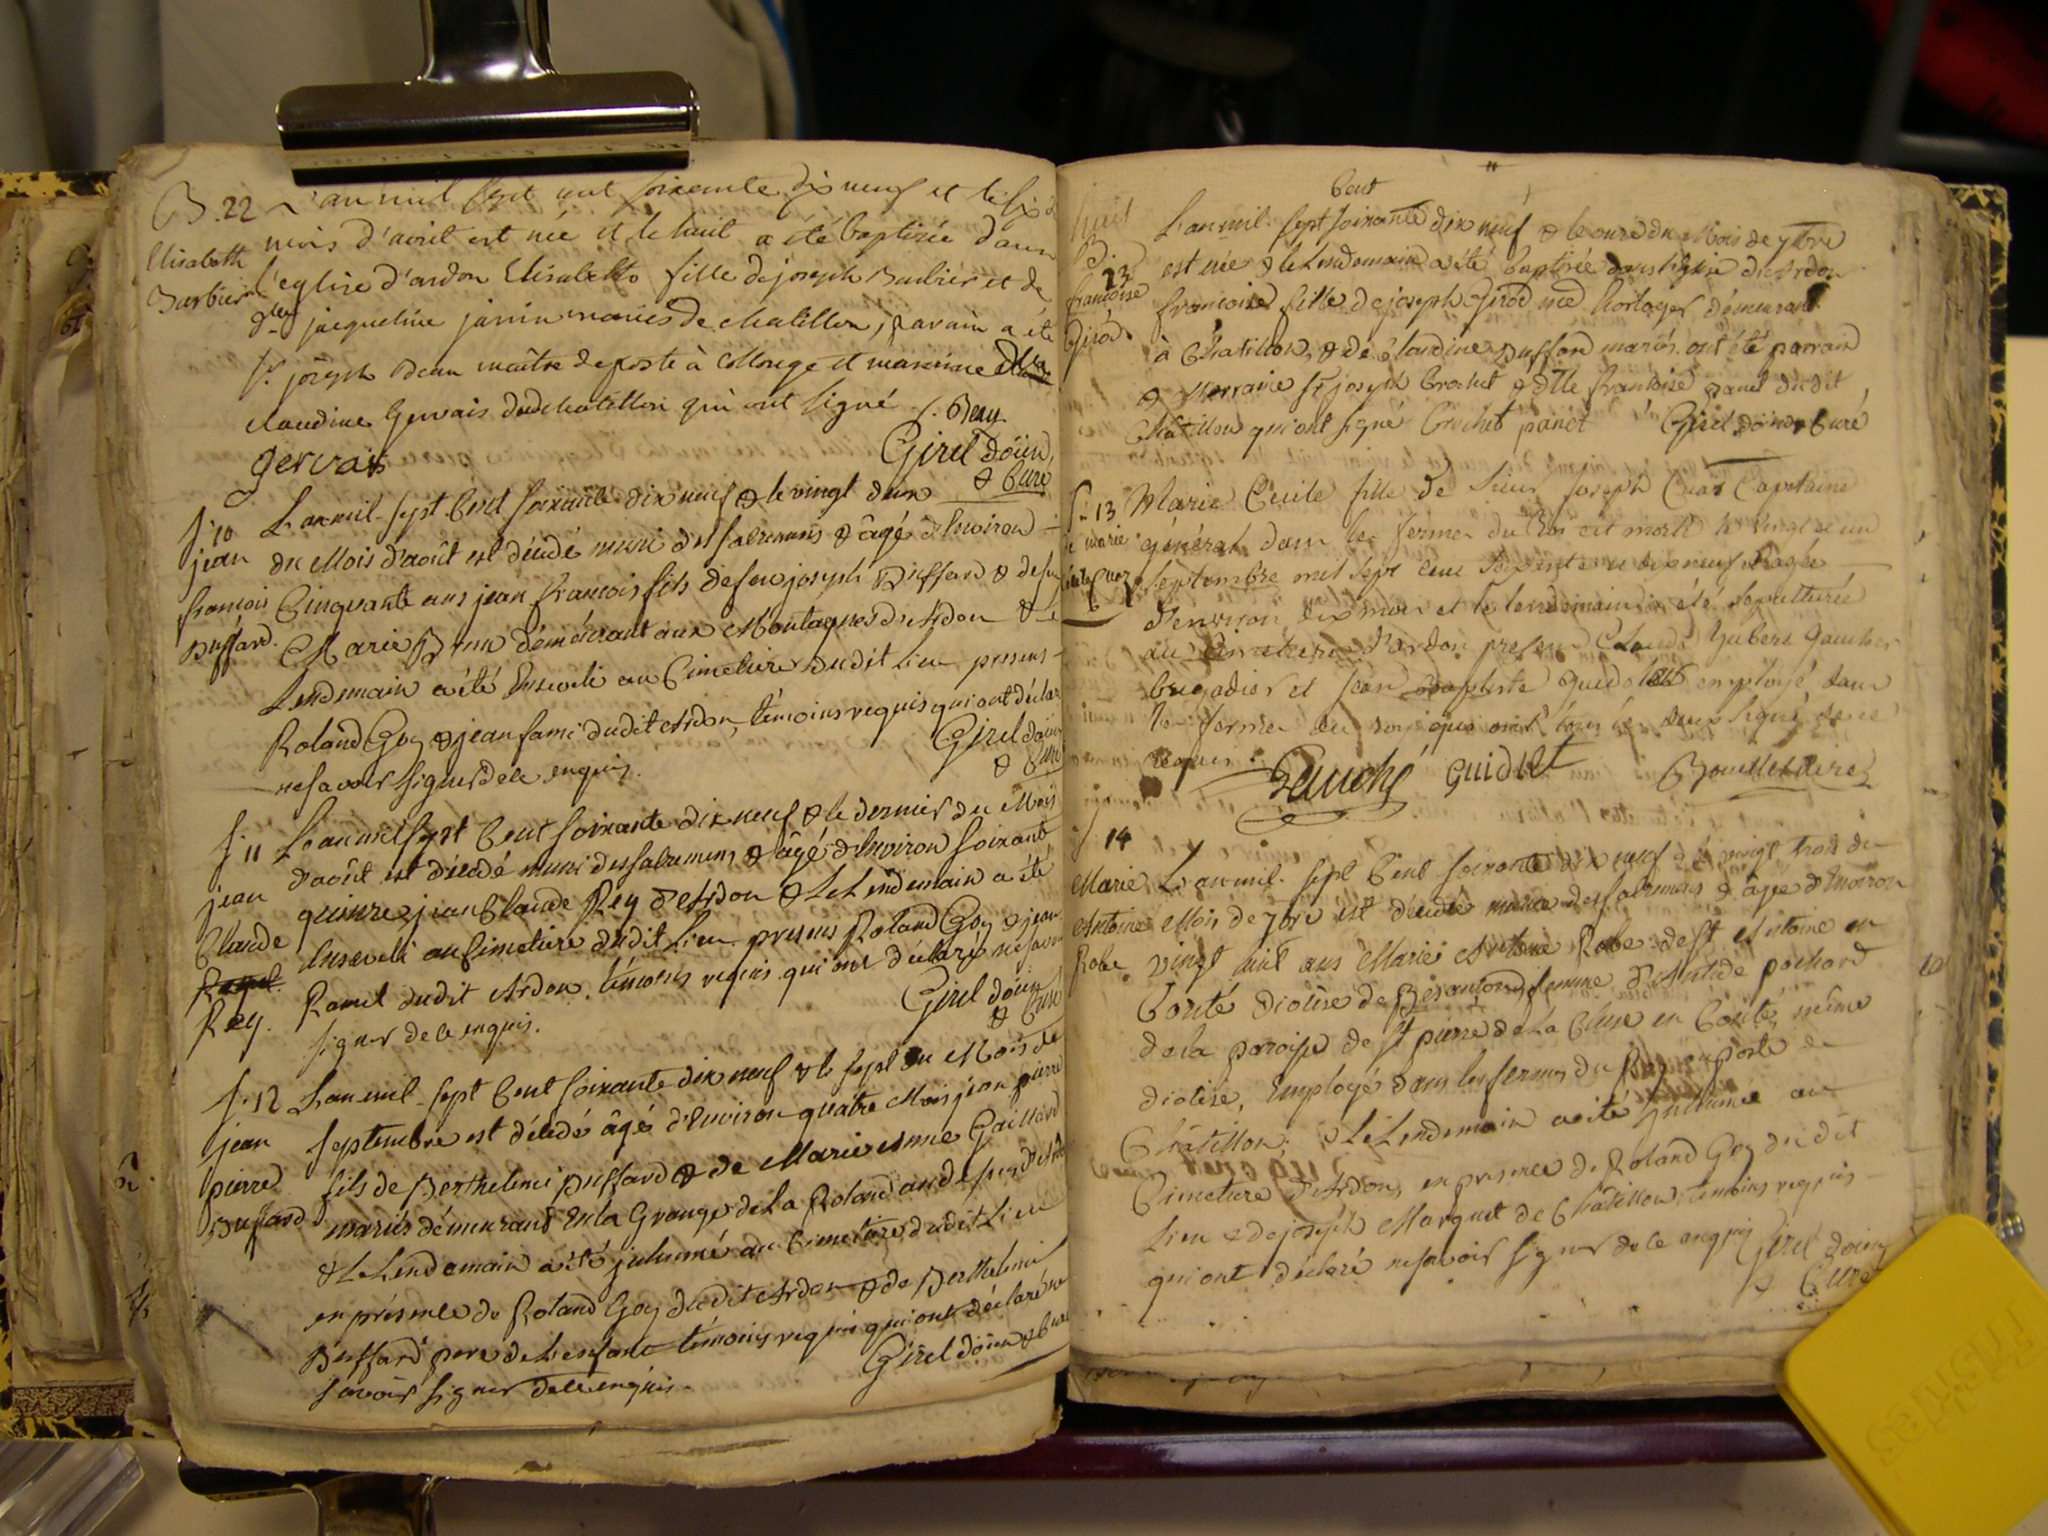 B. 22
Elisabeth
Barbier
L'an mil sept cent soixante dix neuf et le six du
mois d'avril est née et le huit a été baptisée dans
l'eglise d'ardon Elisabeth fille de joseph Barbier et de
jacqueline janin mariés de chatillon, parain a été
Sr joseph maître de poste à Collonge et maraine
claudine Gervais de chatillon qui ont signé
gervais
Girel doüin
& Curé
S. 10
jean
francois
Buffard.
L'an mil sept Cent soixante dix neuf & le vingt deux
du Mois d'août est décédé muni des sacremens & âgé d'Environ
Cinquante ans jean francois fils de feu joseph Buffard & de feu
Marie demeurant aux Montagnes d'Ardon & le
Lendemain a été Enseveli au Cimetiere dudit Lieu presens
Roland Goy & jean fami dudit Ardon, témoins requis qui ont déclaré
ne savoir signer de ce enquis.
Girel doüin
& Curé
S. 11
jean
Claude
Rey.
L'an mil sept Cent soixante dix neuf & le dernier du Mois
d'août est décédé muni des sacremens & âgé d'Environ soixante
quinze jean Claude Rey d'Ardon & Le Lendemain a été
Enseveli au Cimetiere dudit Lieu presens Roland Goy & jean
Ravel dudit Ardon témoins requis qui ont déclaré ne savoir
signer de ce enquis.
Girel doüin
& Curé
S. 12
jean
pierre
Buffard
L'an mil sept Cent soixante dix neuf & le sept du Mois de
septembre est décédé âgé d'Environ quatre Mois jean pierre
fils de Berthelemi Buffard & de Marie Gaillard
mariés demeurans En la Grange de La Roland
& Le Lendemain a été jnhumé au Cimetiere dudit Lieu
en présence de Roland Goy dudit Ardon & de Berthelemi
Buffard pere de L'enfant témoins requis qui ont déclaré ne
savoir signer de ce enquis.
Girel doüin & Curé
B.
23
francoise
Girod.
Cent
L'an mil sept soixante dix neuf & le onze du Mois de 7bre
est née & le Lendemain a été baptisée dans l'Eglise d'Ardon
francoise fille de joseph Girod horloger demeurant
à Chatillon, & de Claudine Buffard mariés. ont été parrain
& Marraine Sr joseph Crochet & Dlle francoise panet dudit
Chatillon qui ont signé Crochet panet Girel doüin & Curé
S. 13
Marie
Cecile Cuaz
Marie Cecile fille de Sieur joseph Cuaz Capitaine
général dans les fermes du Roi est morte le vingt et un
septembre mil sept cent soixante et dix neuf âgée
d'environ dix mois et le lendemain a été sepulturée
au cimetiere d'ardon presens Claude hubert gauché
brigadier et jean baptiste guidolet employé dans
les fermes du roi qui ont tous les deux signé de ce
requis.
gauché guidlet
S. 14
Marie
Antoine
Robe
L'an mil sept Cent soixante dix neuf & le vingt trois du
Mois de 7bre est décédée munie des sacremens & âgée d'Environ
vingt huit ans Marie Antoine Robe de St Antoine en
Comté diocèse de Besancon femme d' pochard
de la parroisse de St pierre de La Cluse en Comté, même
diocèse, Employé dans les fermes du Roy au poste de
Châtillon, & Le Lendemain a été Inhumée au
Cimetiere d'Ardon, en présence de Roland Goy du dit
Lieu & de joseph Marquet de Châtillon, témoins requis
qui ont déclaré ne savoir signer de ce enquis Girel doüin
& Curé